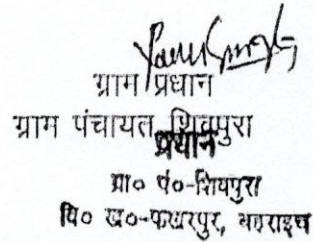 ग्राम प्रधान
ग्राम पंचायत शिवपुरा
प्रधान
ग्रा० पं०-शिवपुरा
वि० ख०-फखरपुर, बहराइच